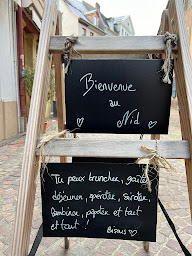 Bienvenue
au
Nid
Tu peux bruncher, goûter
déjeuner, apéroter, siroter,
bambiner, papoter et tout
et tout !
Bisous